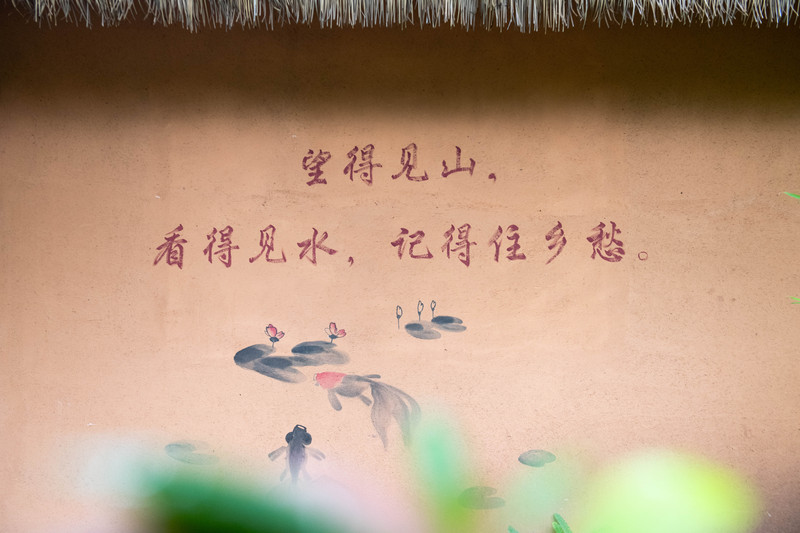 望得见山，
看得见水，记得住乡愁。